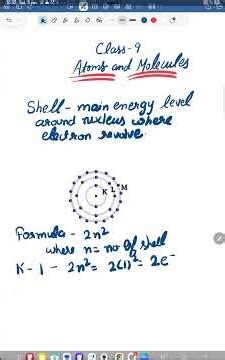 Class-9
Atoms and Molecules
Shell - main energy level
around nucleus where
electron revolve.
K L M
Formula - 2n²
where n = no of shell
K - 1 - 2n² = 2(1)² = 2e⁻